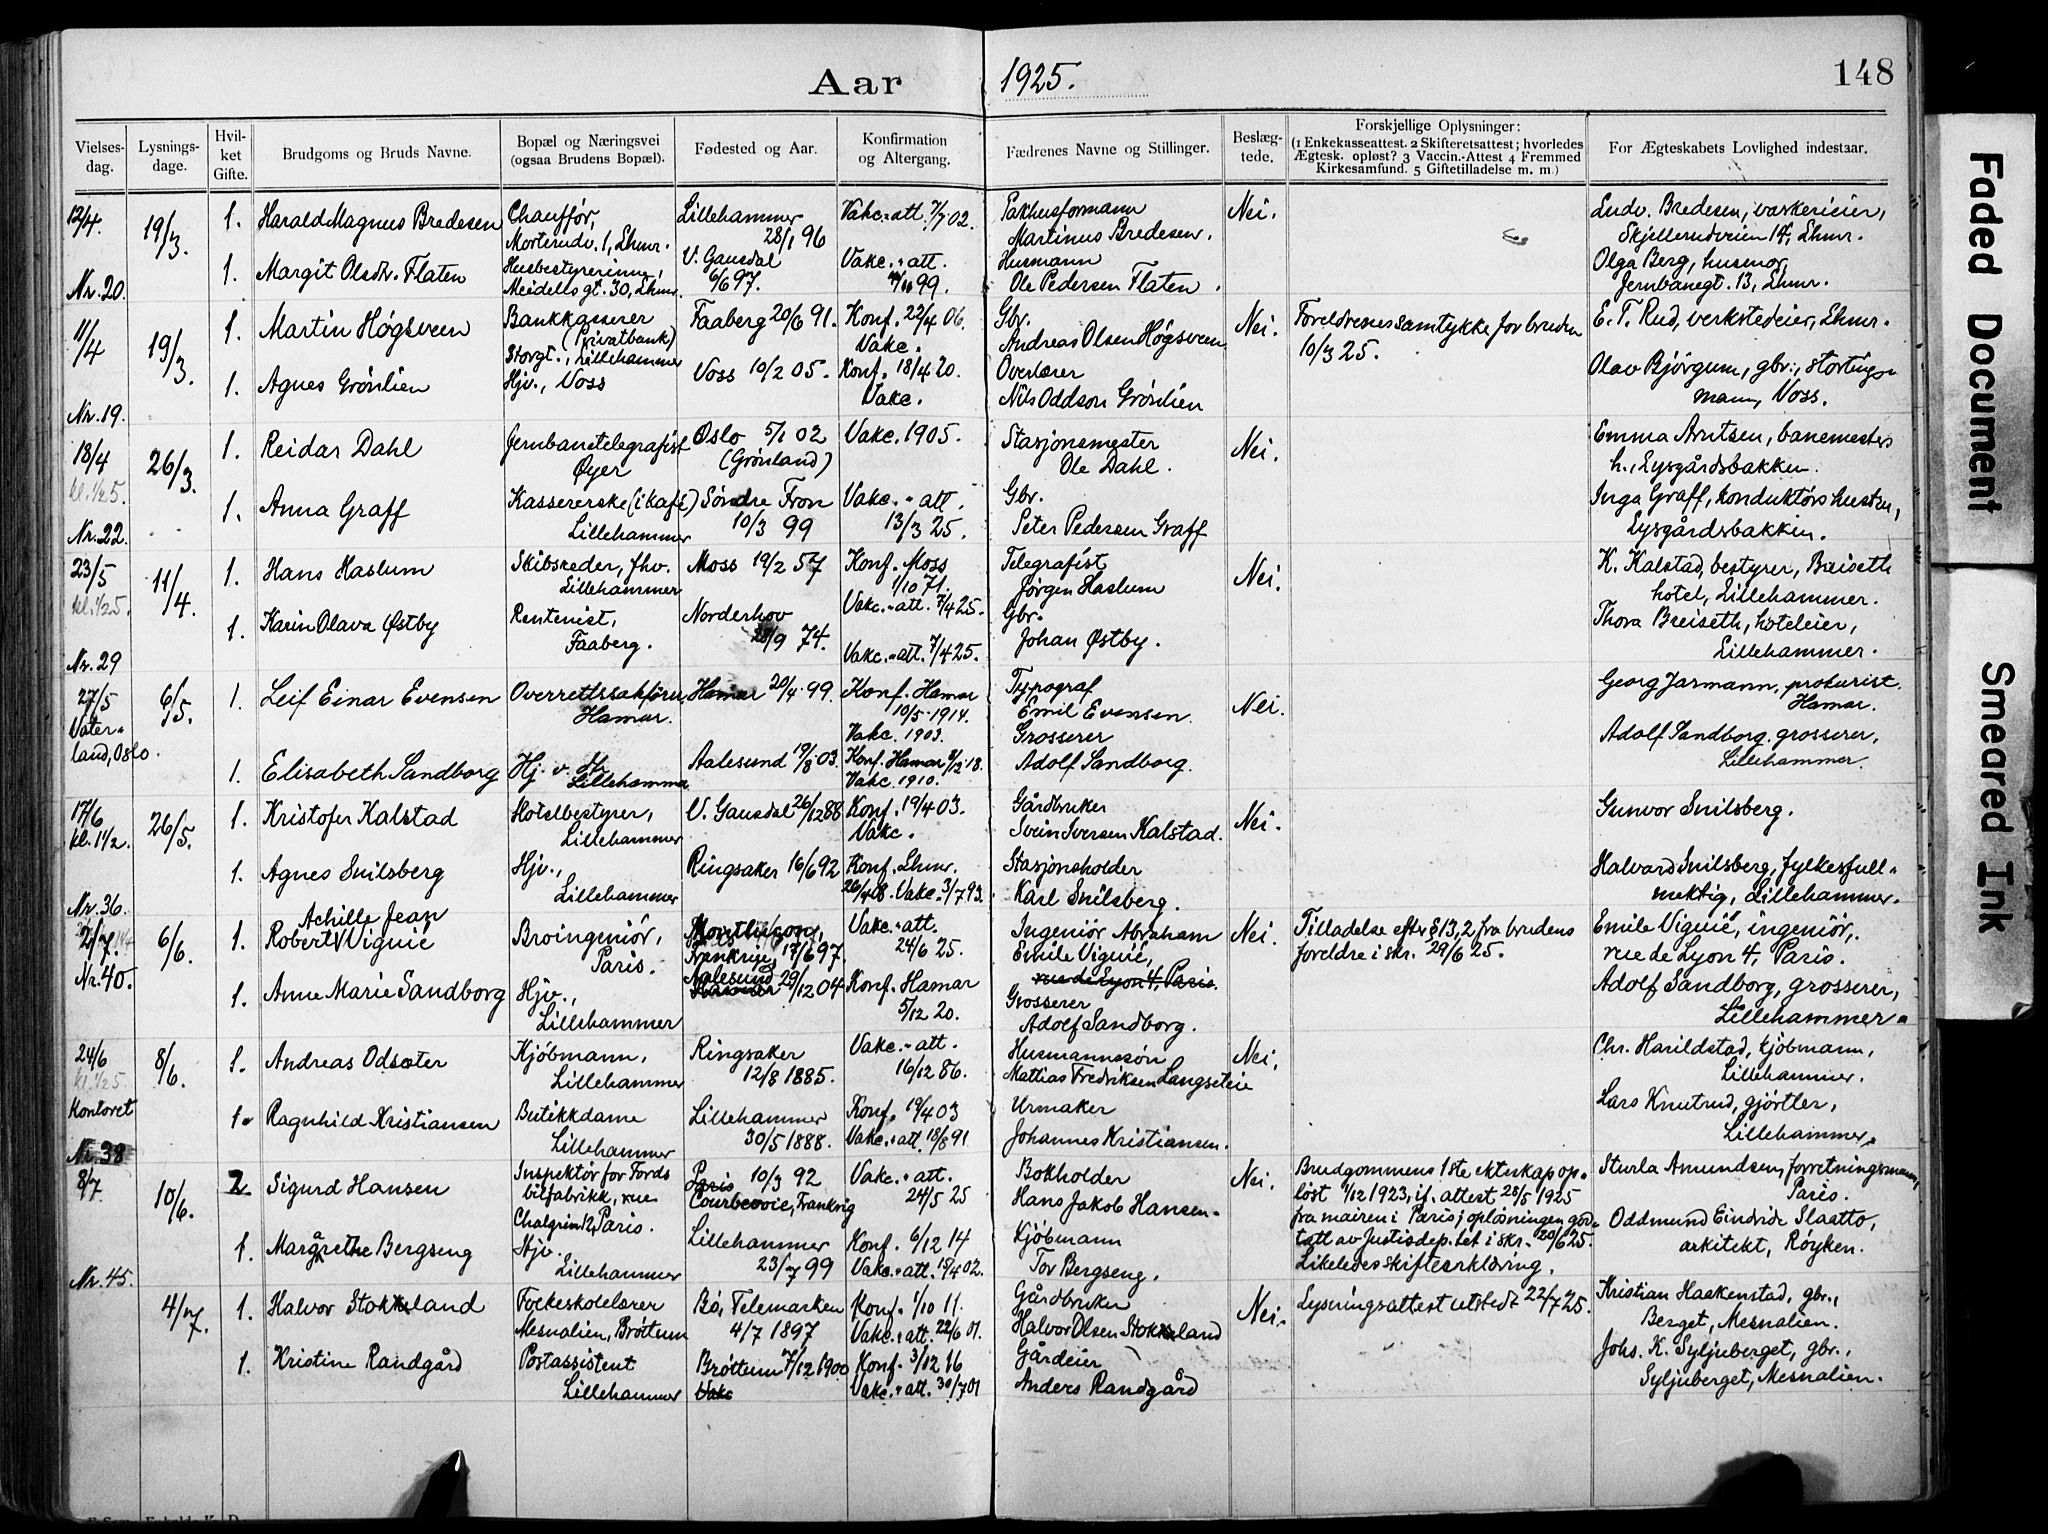 Aar 1925. 148
Vielses-dag.
Lysnings-dage.
Hvil-ket Gifte.
Brudgoms og Bruds Navne.
Bopæl og Næringsvei (ogsaa Brudens Bopæl).
Fødested og Aar.
Konfirmation og Altergang.
Fædrenes Navne og Stillinger.
Beslæg-tede.
Forskjellige Oplysninger:
(1 Enkekasseattest. 2 Skifteretsattest; hvorledes
Ægtesk. opløst? 3 Vaccin.-Attest 4 Fremmed
Kirkesamfund. 5 Giftetilladelse m. m.)
For Ægteskabets Lovlighed indestaar.
12/4. 19/3. 1. Harald Magnus Bredesen
Chauffør,
Morterudv. 1, Lhmr.
Lillehammer
28/1 96
Vakc. att. 7/7 02.
Pakhusformann
Martinus Bredesen.
Nei.
Ludv. Bredesen, vaskerieier,
Skjellerudveien 14, Lhmr.
Nr. 20.
1. Margit Olsdtr. Flaten
Husbestyrerinne,
Meidells gt. 30, Lhmr.
V. Gausdal
6/6 97.
Vakc. att.
99.
Husmann
Ole Pedersen Flaten.
Olga Berg, husmor
Jernbanegt. 13, Lhmr.
11/4 19/3. 1. Martin Høgsveen
Bankkasserer
(Privatbank)
Storgt., Lillehammer
Faaberg 20/6 91.
Konf. 22/4 06.
Vakc.
Gbr.
Andreas Olsen Høgsveen
Nei.
Foreldrenes samtykke for bruden
10/3 25.
E. T. Rud, verkstedeier, Lhmr.
Nr. 19.
1. Agnes Grönlien
Hjv., Voss
Voss 10/2 05.
Konf. 18/4 20.
Vakc.
Overlærer
Nils Oddson Grönlien
Olav Bjørgum, gbr., stortings-
mann, Voss.
18/4
kl. 1/2 5.
26/3. 1. Reidar Dahl
Jernbanetelegrafist
Øyer
Oslo 5/1 02
(Grønland)
Vakc. 1905.
Stasjonsmester
Ole Dahl.
Nei.
Emma Arntsen, banemesters
h., Lysgårdsbakken.
Nr. 22.
1. Anna Graff
Kassererske (i kafé)
Lillehammer
Søndre Fron
10/3 99
Vakc. att.
13/3 25.
Gbr.
Peter Pedersen Graff
Inga Graff, konduktørs hustru,
Lysgårdsbakken.
23/5
kl. 1/2 5.
11/4. 1. Hans Haslum
Skibsreder, fhv.
Lillehammer
Moss 19/2 57
Konf. Moss
1/10 71.
Vakc. att. 7/4 25.
Telegrafist
Jørgen Haslum
Nei.
K. Kalstad, bestyrer, Breiseth
hotel, Lillehammer.
Nr. 29
1. Karin Olava Østby
Rentenist,
Faaberg.
Norderhov
28/9 74.
Vakc. att. 7/4 25.
Gbr.
Johan Østby.
Thora Breiseth, hoteleier,
Lillehammer.
27/5
Vater-
land, Oslo.
6/5. 1. Leif Einar Evensen
Overrettssakfører,
Hamar.
Hamar 20/4 99.
Konf. Hamar
10/5 1914.
Vakc. 1903.
Typograf
Emil Evensen.
Nei.
Georg Jarmann, prokurist.
Hamar.
1. Elisabeth Sandborg
Hj. v. Hr
Lillehammer
Aalesund 19/8 03.
Konf. Hamar 8/12 18.
Vakc. 1910.
Grosserer
Adolf Sandborg.
Adolf Sandborg, grosserer,
Lillehammer.
17/6
kl. 1 1/2.
26/5. 1. Kristofer Kalstad
Hotelbestyrer,
Lillehammer
V. Gausdal 26/12 88
Konf. 19/4 03.
Vakc.
Gårdbruker
Svein Iversen Kalstad.
Nei.
Gunvor Snilsberg.
Nr. 36.
1. Agnes Snilsberg
Hjv.,
Lillehammer
Ringsaker 16/6 92
Konf. Lhmr.
26/4 08. Vakc. 3/7 93.
Stasjonsholder
Karl Snilsberg.
Halvard Snilsberg, fylkesfull-
mektig, Lillehammer.
2/7.
6/6. 1. Achille Jean
Robert Viguié
Broingeniør,
Paris.
Frankrige, 17/6 97.
Vakc. att.
24/6 25.
Ingeniör Abraham
Emile Viguié,
rue de Lyon 4, Paris.
Nei.
Tilladelse efter § 13, 2 fra brudens
foreldre i skr. 29/6 25.
Emile Viguié, ingeniör,
rue de Lyon 4, Paris.
Nr. 40.
1. Anne Marie Sandborg
Hjv.,
Lillehammer
Aalesund
Hamar 29/12 04
Konf. Hamar
5/12 20.
Grosserer
Adolf Sandborg.
Adolf Sandborg, grosserer,
Lillehammer.
24/6
kl. 1/2 5
Kontoret
8/6. 1. Andreas Odsæter
Kjöbmann,
Lillehammer
Ringsaker
12/8 1885.
Vakc. att.
16/12 86.
Husmannssön
Mattias Fredriksen Langseteie
Nei.
Chr. Harildstad, kjöbmann,
Lillehammer.
Nr. 38
1. Ragnhild Kristiansen
Butikkdame
Lillehammer
Lillehammer
30/5 1888.
Konf. 19/4 03
Vakc. att. 18/8 91
Urmaker
Johannes Kristiansen.
Lars Knutrud, gjørtler,
Lillehammer.
8/7
10/6. 2. Sigurd Hansen
Inspektör for Fords
bilfabrikk, rue
Chalgrin 12, Paris.
Paris 10/3 92
Courbevoie, Frankrig
Vakc. att.
24/5 25
Bokholder
Hans Jakob Hansen.
Nei.
Brudgommens 1ste ekteskap op-
löst 1/12 1923, if. attest 28/5 1925
fra mairen i Paris; oplösningen god-
tatt av Justisdep.tet i skr. 20/6 25.
Likeledes skifteerklæring.
Sturla Amundsen, forretningsmann,
Paris.
Nr. 45.
1. Margrethe Bergseng
Hjv.
Lillehammer
Lillehammer
23/7 99
Konf. 6/12 14
Vakc. att. 18/4 02.
Kjöbmann
Tor Bergseng.
Oddmund Eindride Slaatto,
arkitekt, Røyken.
4/7. 1. Halvor Stokkeland
Folkeskolelærer
Mesnalien, Brøttum
Bø, Telemarken
4/7 1897
Konf. 1/10 11.
Vakc. att. 22/6 01.
Gårdbruker
Halvor Olsen Stokkeland
Nei.
Lysningsattest utstedt 22/7 25.
Kristian Haakenstad, gbr.,
Berget, Mesnalien.
1. Kristine Randgård
Postassistent
Lillehammer
Brøttum 7/12 1900
Vakc
Konf. 3/12 16
Vakc. att. 30/7 01
Gårdeier
Anders Randgård
Johs. K. Syljuberget, gbr.,
Syljuberget, Mesnalien.
Faded Document
Smeared Ink